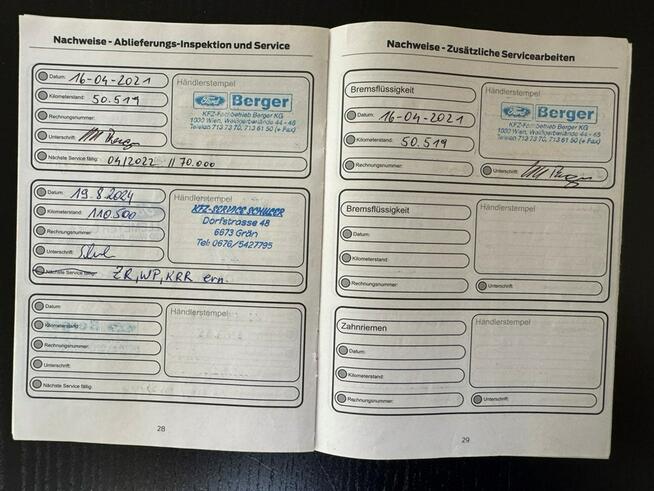 Nachweise - Ablieferungs-Inspektion und Service
Datum: 16-04-2021
Kilometerstand: 50.519
Rechnungsnummer:
Unterschrift:
Nächste Service fällig: 04/2022 // 70.000
Händlerstempel
Ford Berger
KFZ-Fachbetrieb Berger KG
1000 Wien, Waldgerberlände 44 - 46
Telefon 713 73 70, 713 61 50 (+ Fax)
Datum: 19.8.2024
Kilometerstand: 110500
Rechnungsnummer:
Unterschrift:
Nächste Service fällig: ZR, WP, KRR ern.
Händlerstempel
KFZ-SERVICE SCHUSER
Dorfstrasse 48
6673 Grän
Tel: 0676/5427795
Datum:
Kilometerstand:
Rechnungsnummer:
Unterschrift:
Nächste Service fällig:
Händlerstempel
28
Nachweise - Zusätzliche Servicearbeiten
Bremsflüssigkeit
Datum: 16-04-2021
Kilometerstand: 50.519
Rechnungsnummer:
Händlerstempel
Ford Berger
KFZ-Fachbetrieb Berger KG
1000 Wien, Waldgerberlände 44 - 46
Telefon 713 73 70, 713 61 50 (+ Fax)
Unterschrift:
Bremsflüssigkeit
Datum:
Kilometerstand:
Rechnungsnummer:
Händlerstempel
Unterschrift:
Zahnriemen
Datum:
Kilometerstand:
Rechnungsnummer:
Händlerstempel
Unterschrift:
29